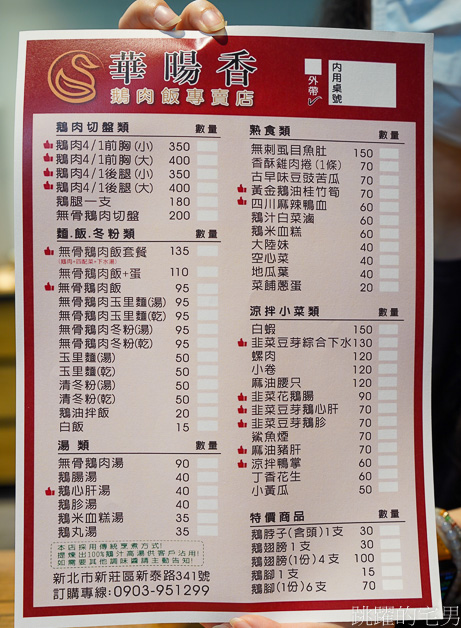 華暘香
鵝肉飯專賣店
外帶
內用桌號
鵝肉切盤類 數量
鵝肉4/1前胸(小) 350
鵝肉4/1前胸(大) 400
鵝肉4/1後腿(小) 350
鵝肉4/1後腿(大) 400
鵝腿一支 180
無骨鵝肉切盤 200
麵.飯.冬粉類 數量
無骨鵝肉飯套餐 135
(鵝肉+四配菜+下水湯)
無骨鵝肉飯+蛋 110
無骨鵝肉飯 95
無骨鵝肉玉里麵(湯) 95
無骨鵝肉玉里麵(乾) 95
無骨鵝肉冬粉(湯) 95
無骨鵝肉冬粉(乾) 95
玉里麵(湯) 50
玉里麵(乾) 50
清冬粉(湯) 50
清冬粉(乾) 50
鵝油拌飯 20
白飯 15
湯 類 數量
無骨鵝肉湯 90
鵝腸湯 40
鵝心肝湯 40
鵝胗湯 40
鵝米血糕湯 35
鵝丸湯 35
本店採用傳統烹煮方式!
提煉出100%鵝汁高湯供客戶沾用!
如需要其他調味醬請主動告知!
新北市新莊區新泰路341號
訂購專線:0903-951299
熟食類 數量
無刺虱目魚肚 150
香酥雞肉捲(1條) 70
古早味豆豉苦瓜 70
黃金鵝油桂竹筍 70
四川麻辣鴨血 60
鵝汁白菜滷 60
鵝米血糕 60
大陸妹 40
空心菜 40
地瓜葉 40
菜脯蔥蛋 20
涼拌小菜類 數量
白蝦 150
韭菜豆芽綜合下水 130
螺肉 120
小卷 120
麻油腰只 120
韭菜花鵝腸 90
韭菜豆芽鵝心肝 70
韭菜豆芽鵝胗 70
鯊魚煙 70
麻油豬肝 70
涼拌鴨掌 60
丁香花生 60
小黃瓜 50
特價商品 數量
鵝脖子(含頭)1支 30
鵝翅膀1支 30
鵝翅膀(1份)4支 100
鵝腳1支 15
鵝腳(1份)6支 70
跳躍的宅男